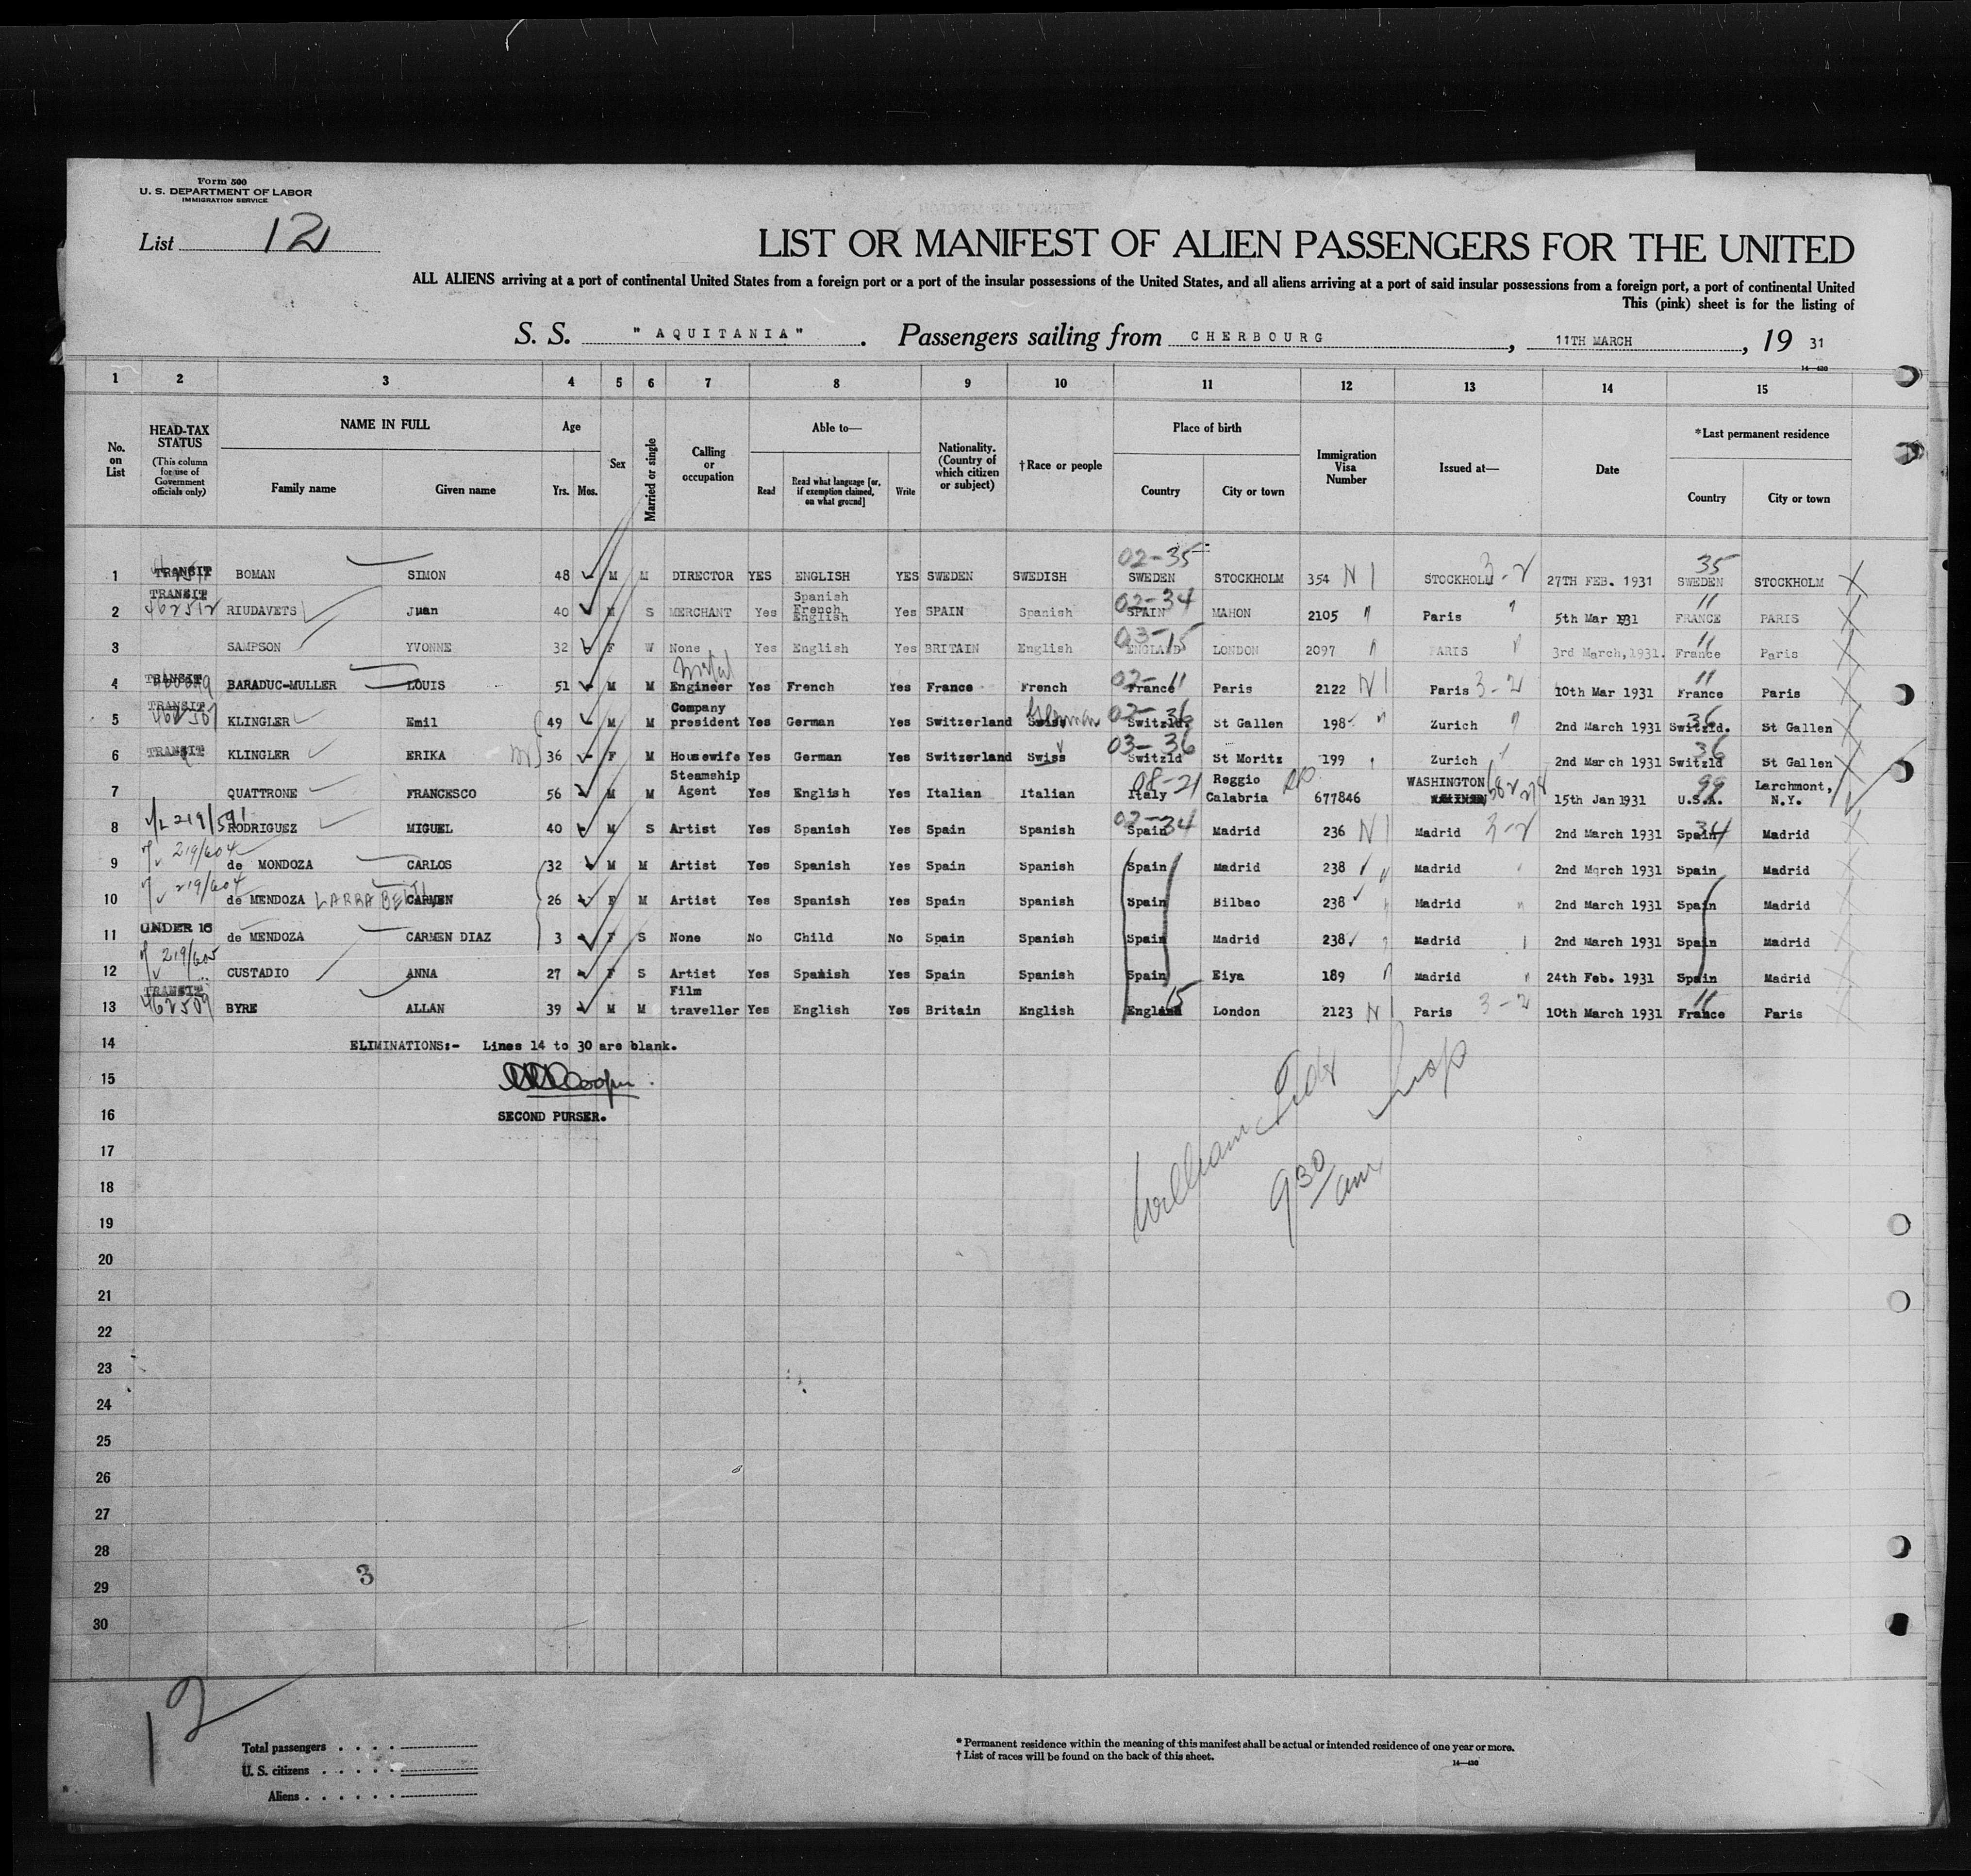 Form 500
U. S. DEPARTMENT OF LABOR
IMMIGRATION SERVICE
List 12
LIST OR MANIFEST OF ALIEN PASSENGERS FOR THE UNITED
ALL ALIENS arriving at a port of continental United States from a foreign port or a port of the insular possessions of the United States, and all aliens arriving at a port of said insular possessions from a foreign port, a port of continental United
This (pink) sheet is for the listing of
S. S. "AQUITANIA". Passengers sailing from CHERBOURG, 11TH MARCH, 19 31
14-430
1 2 3 4 5 6 7 8 9 10 11 12 13 14 15
No. on List
HEAD-TAX STATUS (This column for use of Government officials only)
NAME IN FULL Family name Given name
Age Yrs. Mos.
Sex
Married or single
Calling or occupation
Able to— Read Read what language [or, if exemption claimed, on what ground] Write
Nationality. (Country of which citizen or subject)
†Race or people
Place of birth Country City or town
Immigration Visa Number
Issued at—
Date
*Last permanent residence Country City or town
02-35 3-2 35
1 TRANSIT BOMAN SIMON 48 M M DIRECTOR YES ENGLISH YES SWEDEN SWEDISH SWEDEN STOCKHOLM 354 N I STOCKHOLM 27TH FEB. 1931 SWEDEN STOCKHOLM
TRANSIT 02-34 11
2 462512 RIUDAVETS Juan 40 M S MERCHANT Yes Spanish French English Yes SPAIN Spanish SPAIN MAHON 2105 " Paris " 5th Mar 1931 FRANCE PARIS
03-15 11
3 SAMPSON YVONNE 32 F W None Yes English Yes BRITAIN English ENGLAND LONDON 2097 " PARIS " 3rd March, 1931. France Paris
02-11 11
4 TRANSIT BARADUC-MULLER LOUIS 51 M M Engineer Yes French Yes France French France Paris 2122 N I Paris 3-2 10th Mar 1931 France Paris
TRANSIT German 02-36 36
5 462507 KLINGLER Emil 49 M M Company president Yes German Yes Switzerland Swiss Switzld. St Gallen 198 " Zurich " 2nd March 1931 Switzld. St Gallen
03-36 36
6 TRANSIT KLINGLER ERIKA 36 F M Housewife Yes German Yes Switzerland Swiss Switzld St Moritz 199 Zurich 2nd March 1931 Switzld St Gallen
08-21 99
7 QUATTRONE FRANCESCO 56 M M Steamship Agent Yes English Yes Italian Italian Italy Reggio Calabria 677846 WASHINGTON 15th Jan 1931 U.S.A. Larchmont, N.Y.
219/591 02-34 34
8 RODRIGUEZ MIGUEL 40 M S Artist Yes Spanish Yes Spain Spanish Spain Madrid 236 N I Madrid 3-2 2nd March 1931 Spain Madrid
219/604
9 de MONDOZA CARLOS 32 M M Artist Yes Spanish Yes Spain Spanish Spain Madrid 238 Madrid 2nd March 1931 Spain Madrid
219/604
10 de MENDOZA CARMEN 26 F M Artist Yes Spanish Yes Spain Spanish Spain Bilbao 238 Madrid 2nd March 1931 Spain Madrid
UNDER 16
11 de MENDOZA CARMEN DIAZ 3 F S None No Child No Spain Spanish Spain Madrid 238 Madrid 2nd March 1931 Spain Madrid
219/605
12 CUSTADIO ANNA 27 F S Artist Yes Spanish Yes Spain Spanish Spain Eiya 189 Madrid 24th Feb. 1931 Spain Madrid
TRANSIT 15 11
13 462509 BYRE ALLAN 39 M M Film traveller Yes English Yes Britain English England London 2123 N I Paris 3-2 10th March 1931 France Paris
14 ELIMINATIONS:- Lines 14 to 30 are blank.
15 Cooper
16 SECOND PURSER.
17
18
19
20
21
22
23
24
25
26
27
28
29
30
William
Insp
9 30 am
3
12
Total passengers
U. S. citizens
Aliens
* Permanent residence within the meaning of this manifest shall be actual or intended residence of one year or more.
† List of races will be found on the back of this sheet.
14-430